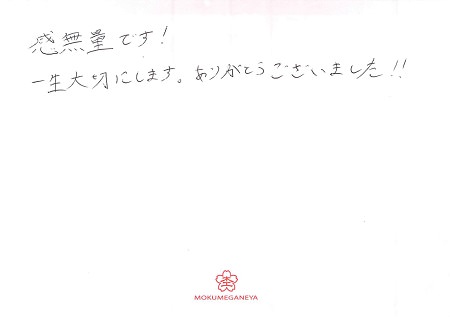 感無量です!
一生大切にします。ありがとうございました!!
杢
MOKUMEGANEYA